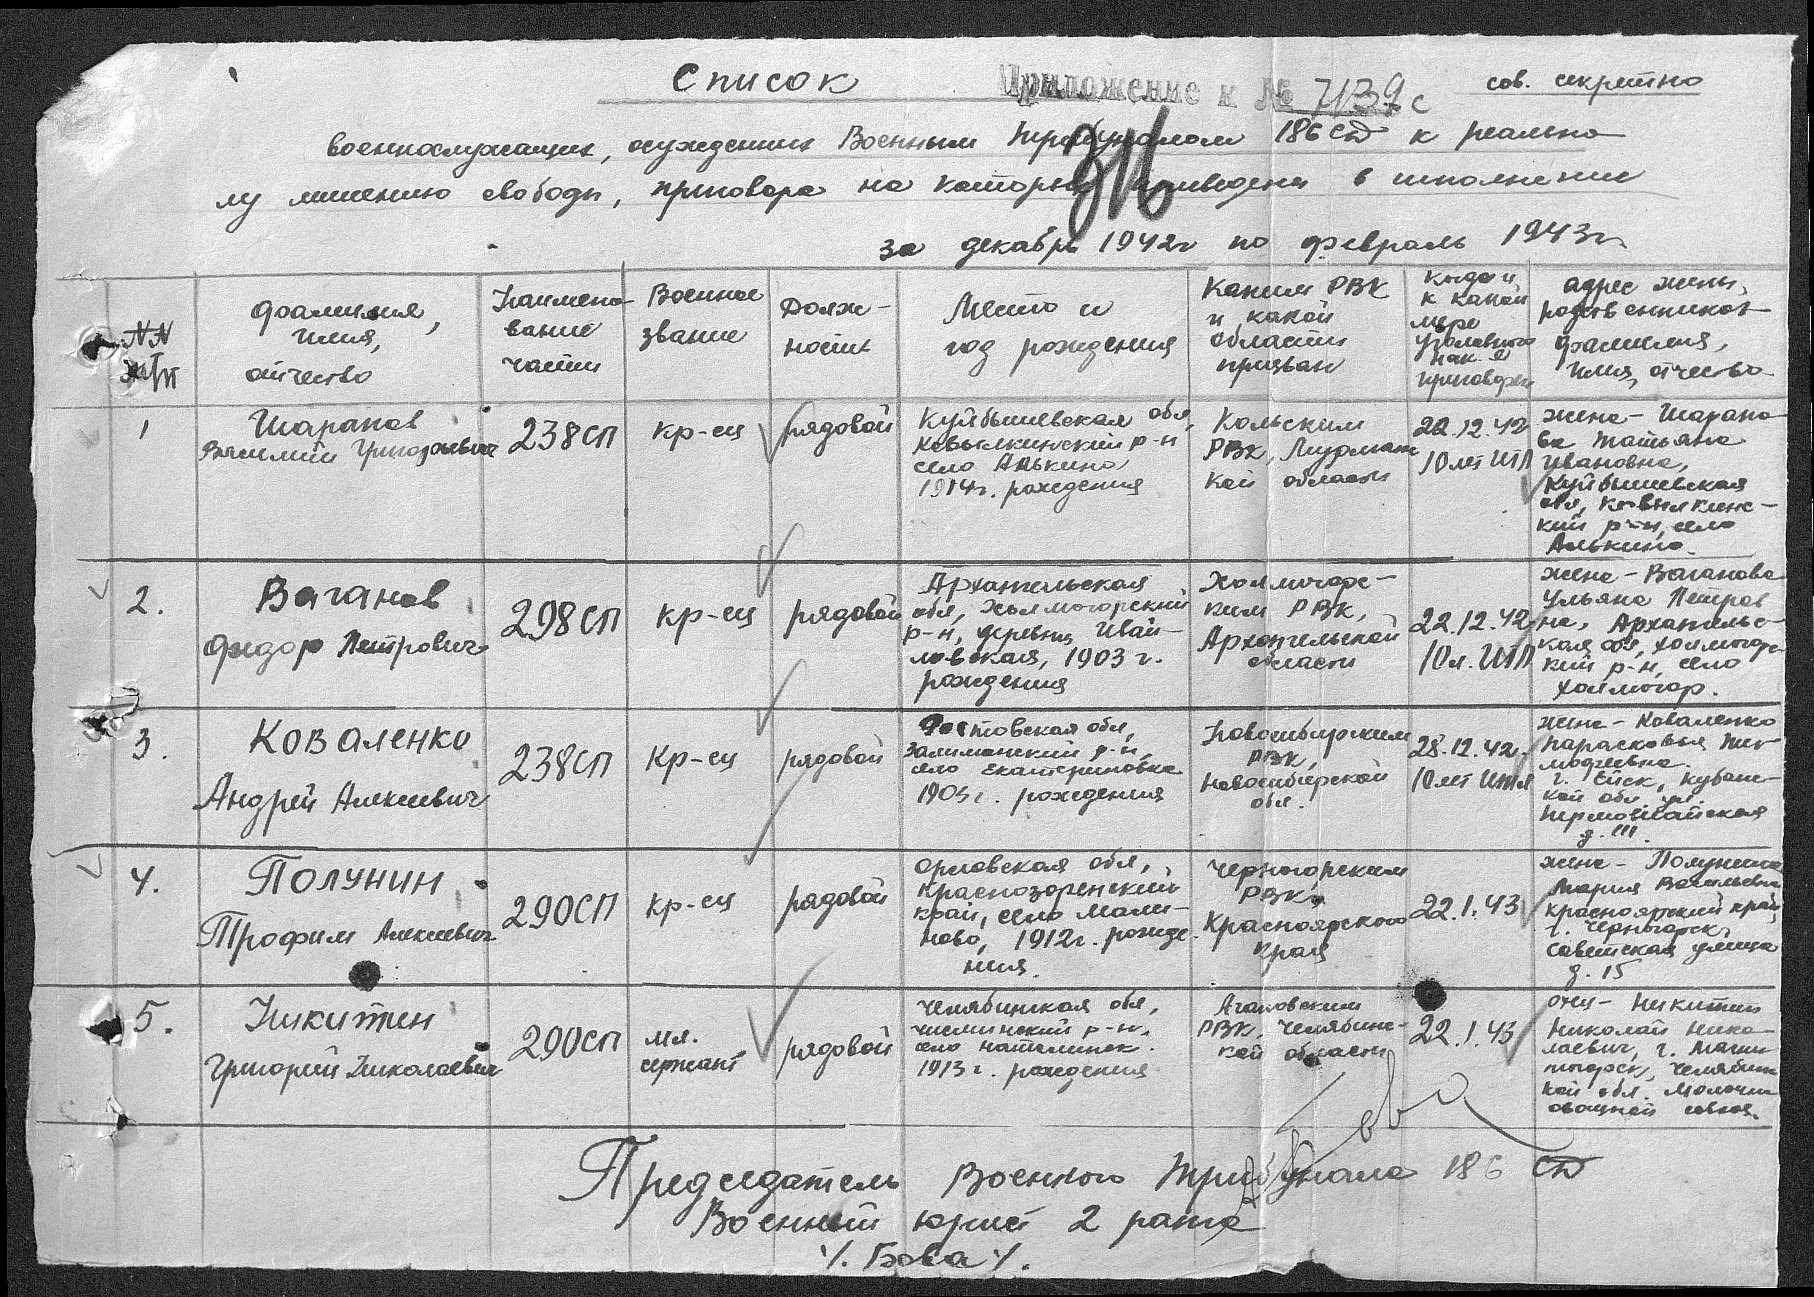 Список
Приложение к № 7139с
сов. секретно
военнослужащих, осужденных Военным Трибуналом 186 СД к реально-
му лишению свободы, приговора на которых приведены в исполнение
за декабрь 1942г по февраль 1943г.
№№ п/п
фамилия,
имя,
отчество
Наимено-
вание
части
Военное
звание
Долж-
ность
Место и
год рождения
Каким РВК
и какой
области
призван
Когда и
к какой
мере
уголовного
нак-я
приговорен
адрес жены,
родственников
фамилия,
имя, отчество
1
Шарапов
Василий Григорьевич
238СП
кр-ец
рядовой
Куйбышевская обл,
Ковылкинский р-н
село Алькино
1914г. рождения
Кольским
РВК, Мурманс
кой области
22.12.42
10 лет ИТЛ
жена - Шарапо-
ва Татьяна
Ивановна,
Куйбышевская
обл, Ковылкинс-
кий р-н, село
Алькино.
2.
Ваганов
Федор Петрович
298СП
кр-ец
рядовой
Архангельская
обл, Холмогорский
р-н, деревня Ивай-
ловская, 1903 г.
рождения
Холмогорс-
ким РВК,
Архангельской
области
22.12.42
10 л. ИТЛ
жена - Ваганова
Ульяна Петров
на, Архангельс-
кая обл, Холмогорс-
кий р-н, село
Холмогор.
3.
Коваленко
Андрей Алексеевич
238СП
Кр-ец
рядовой
Ростовская обл,
р-н,
село Екатериновка
1903г. рождения
Новосибирским
РВК,
Новосибирской
обл.
28.12.42г.
10 лет ИТЛ
жена - Коваленко
Парасковья Ти-
мофеевна.
г. Ейск, Кубанс-
кой обл ул.
Первомайская
д. 111.
4.
Полунин
Трофим Алексеевич
290СП
кр-ец
рядовой
Орловская обл,
Краснозоренский
край, село Мали-
ново, 1912г. рожде-
ния.
Черногорским
РВК,
Красноярского
края
22.1.43
жена - Полунина
Мария Васильевна
Красноярский край,
г. Черногорск,
Советская улица
д. 15
5.
Никитин
Григорий Николаевич
290СП
мл.
сержант
рядовой
Челябинская обл,
р-н,
село
1913г. рождения
Агаповским
РВК, Челябинс-
кой области
22.1.43
отец - Никитин
Николай Нико-
лаевич, г. Магни-
тогорск, Челябинс
кой обл. Молочно
овощной совхоз.
Председатель Военного Трибунала 186 СД
Военный юрист 2 ранга
/. Бова /.